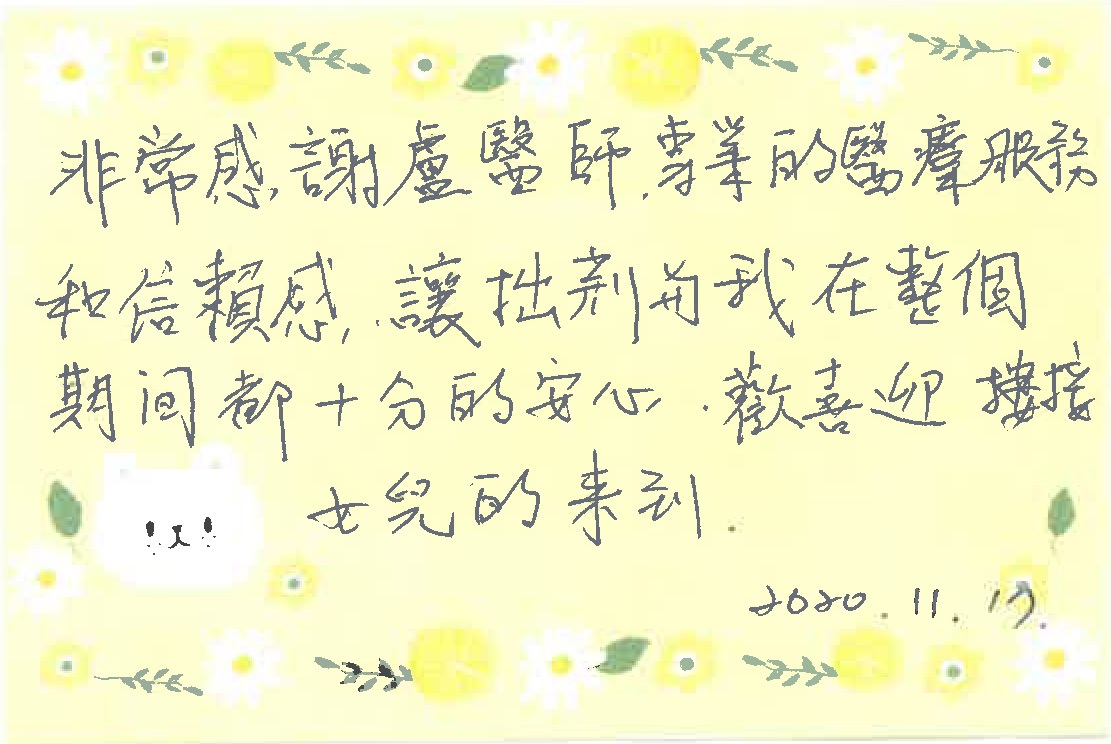 非常感謝盧醫師,專業的醫療服務
和信賴感,讓拙荊與我在整個
期间都十分的安心.歡喜迎接
女兒的来到.
2020.11.17.